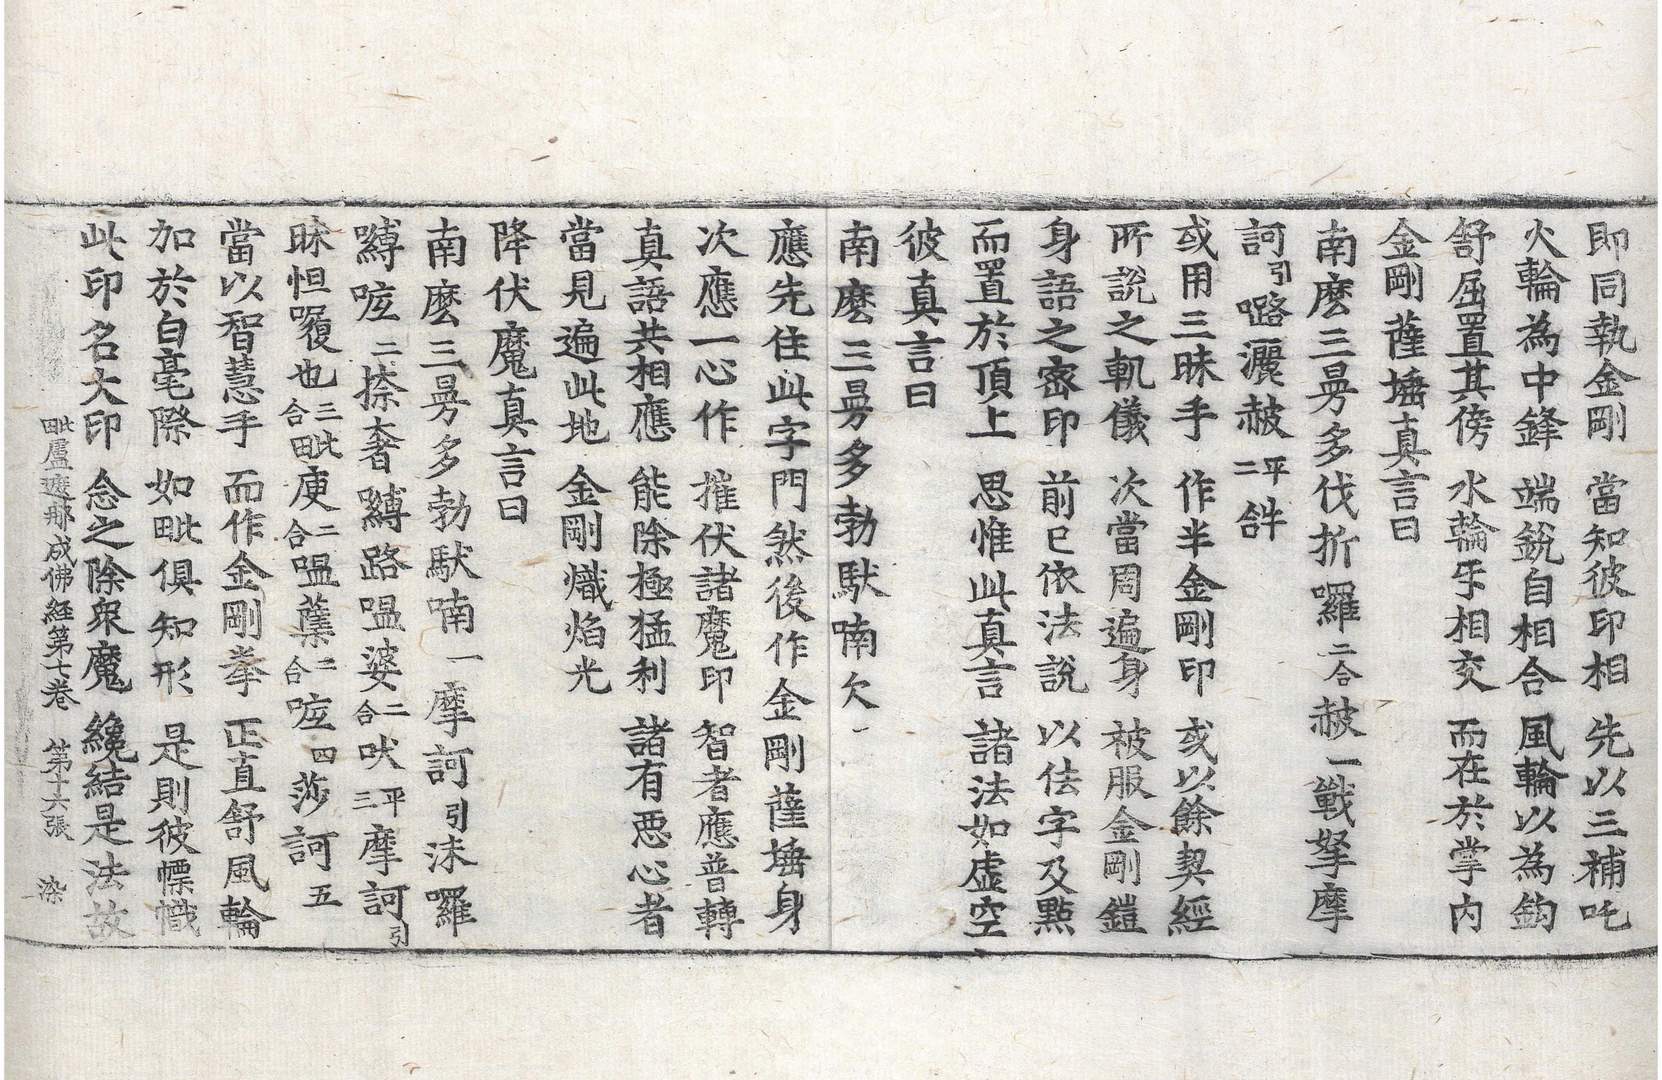 即同執金剛　當知彼印相　先以三補吒
火輪為中鋒　端銳自相合　風輪以為鈎
舒屈置其傍　水輪㸦相交　而在於掌內
金剛薩埵真言曰
南麼三曼多伐折囉二合赧一戰拏摩
訶引𡀔灑赧二平𤙖
或用三昧手　作半金剛印　或以餘契經
所說之軌儀　次當周遍身　被服金剛鎧
身語之密印　前已依法說　以佉字及點
而置於頂上　思惟此真言　諸法如虛空
彼真言曰
南麼三曼多勃馱喃欠一
應先住此字門然後作金剛薩埵身
次應一心作　摧伏諸魔印　智者應普轉
真語共相應　能除極猛利　諸有惡心者
當見遍此地　金剛熾焰光
降伏魔真言曰
南麼三曼多勃馱喃一摩訶引沫囉
嚩㕹二捺奢嚩路嗢婆二合吠三平摩訶引
昧怛囉也三合毗庾二合嗢蘖二合㕹四莎訶五
當以智慧手　而作金剛拳　正直舒風輪
加於白毫際　如毗俱知形　是則彼慓幟
此印名大印　念之除衆魔　纔結是法故
毗盧遮那成佛經第七卷　第十六張　染